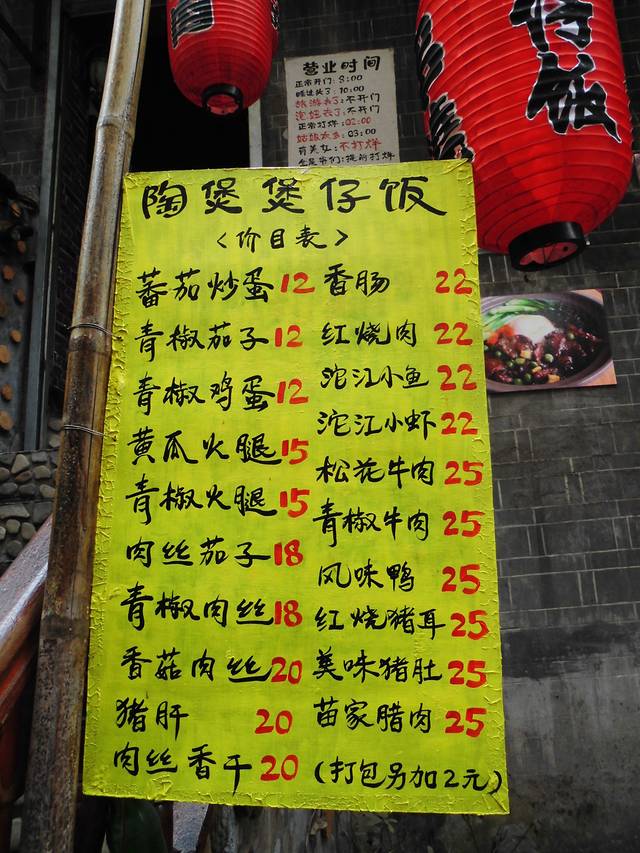 营业时间
正常开门:8:00
睡过头了:10:00
旅游去了:不开门
泡妞去了:不开门
正常打烊:02:00
姑娘太多:03:00
有美女:不打烊
全是爷们:提前打烊
饭
陶煲煲仔饭
<价目表>
蕃茄炒蛋12
青椒茄子12
青椒鸡蛋12
黄瓜火腿15
青椒火腿15
肉丝茄子18
青椒肉丝18
香菇肉丝20
猪肝 20
肉丝香干20
香肠 22
红烧肉 22
沱江小鱼22
沱江小虾22
松花牛肉25
青椒牛肉25
风味鸭 25
红烧猪耳25
美味猪肚25
苗家腊肉25
(打包另加2元)